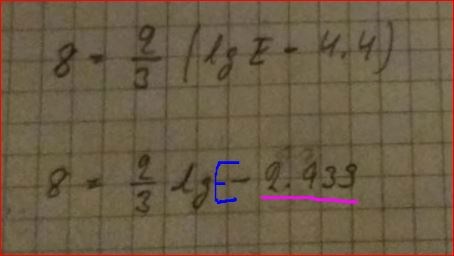 8 = 2/3 (lg E - 4.4)
8 = 2/3 lg E - 2.933